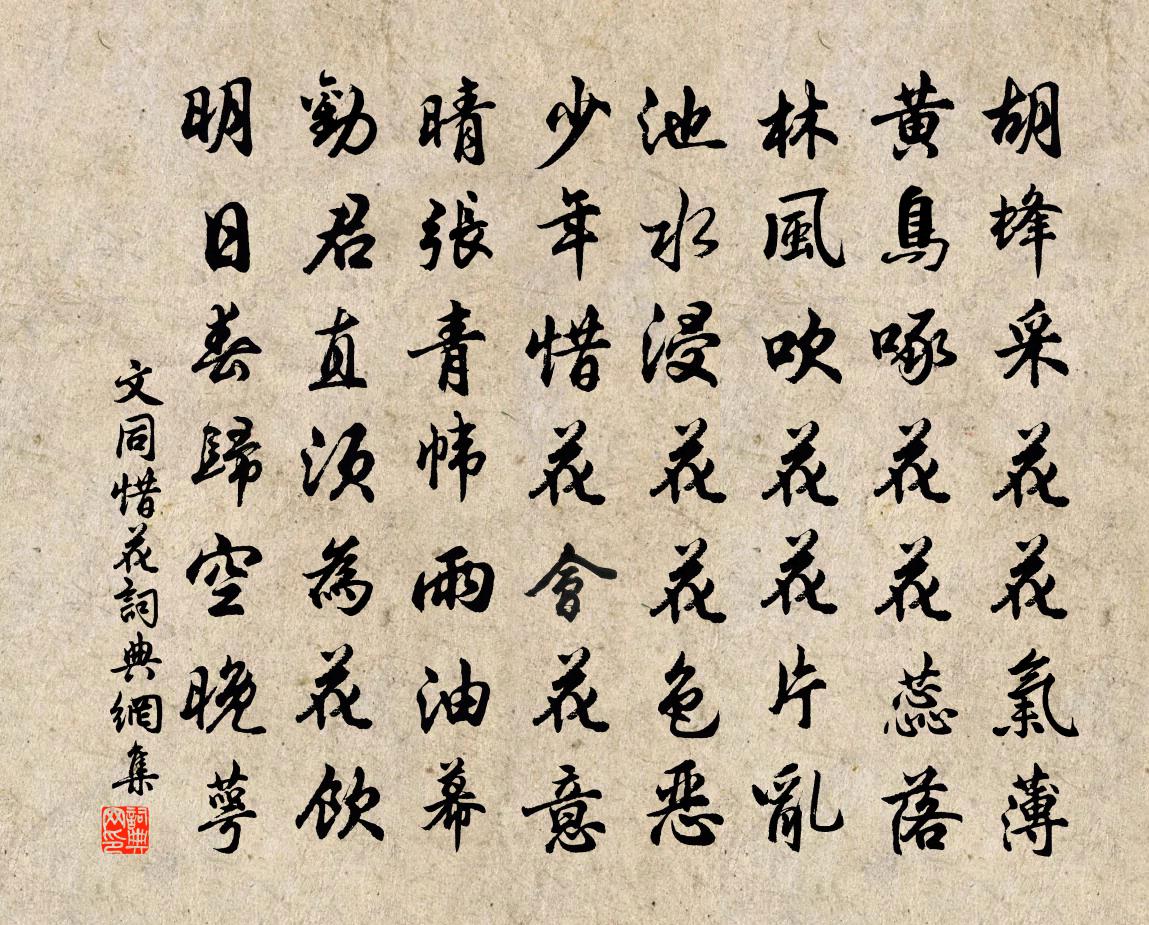 胡蜂采花花氣薄
黄鳥啄花花蕊落
林風吹花花片亂
池水浸花花色恶
少年惜花會花意
晴張青帏雨油幕
勸君直須為花飲
明日春歸空晚萼
文同惜花詞典網集
詞典网印